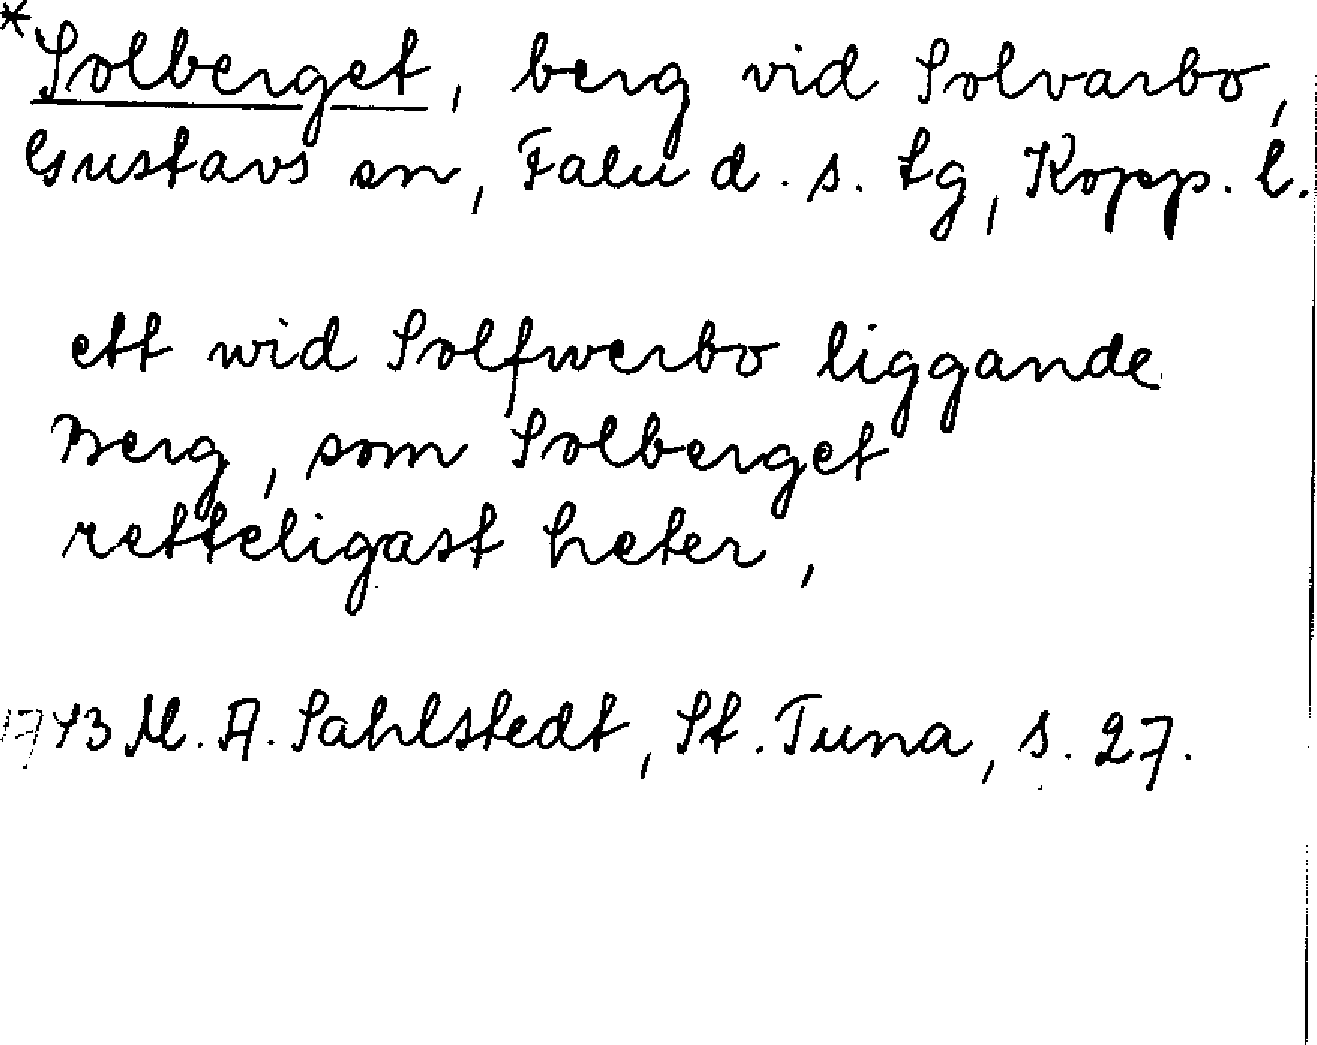 *Solberget, berg vid Solvarbo,
Gustavs sn, Falu d. s. tg, Kopp. l.
ett wid Solfwerbo liggande
Berg, som Solberget
retteligast heter,
1743 M. A. Sahlstedt, St. Tuna, s. 27.